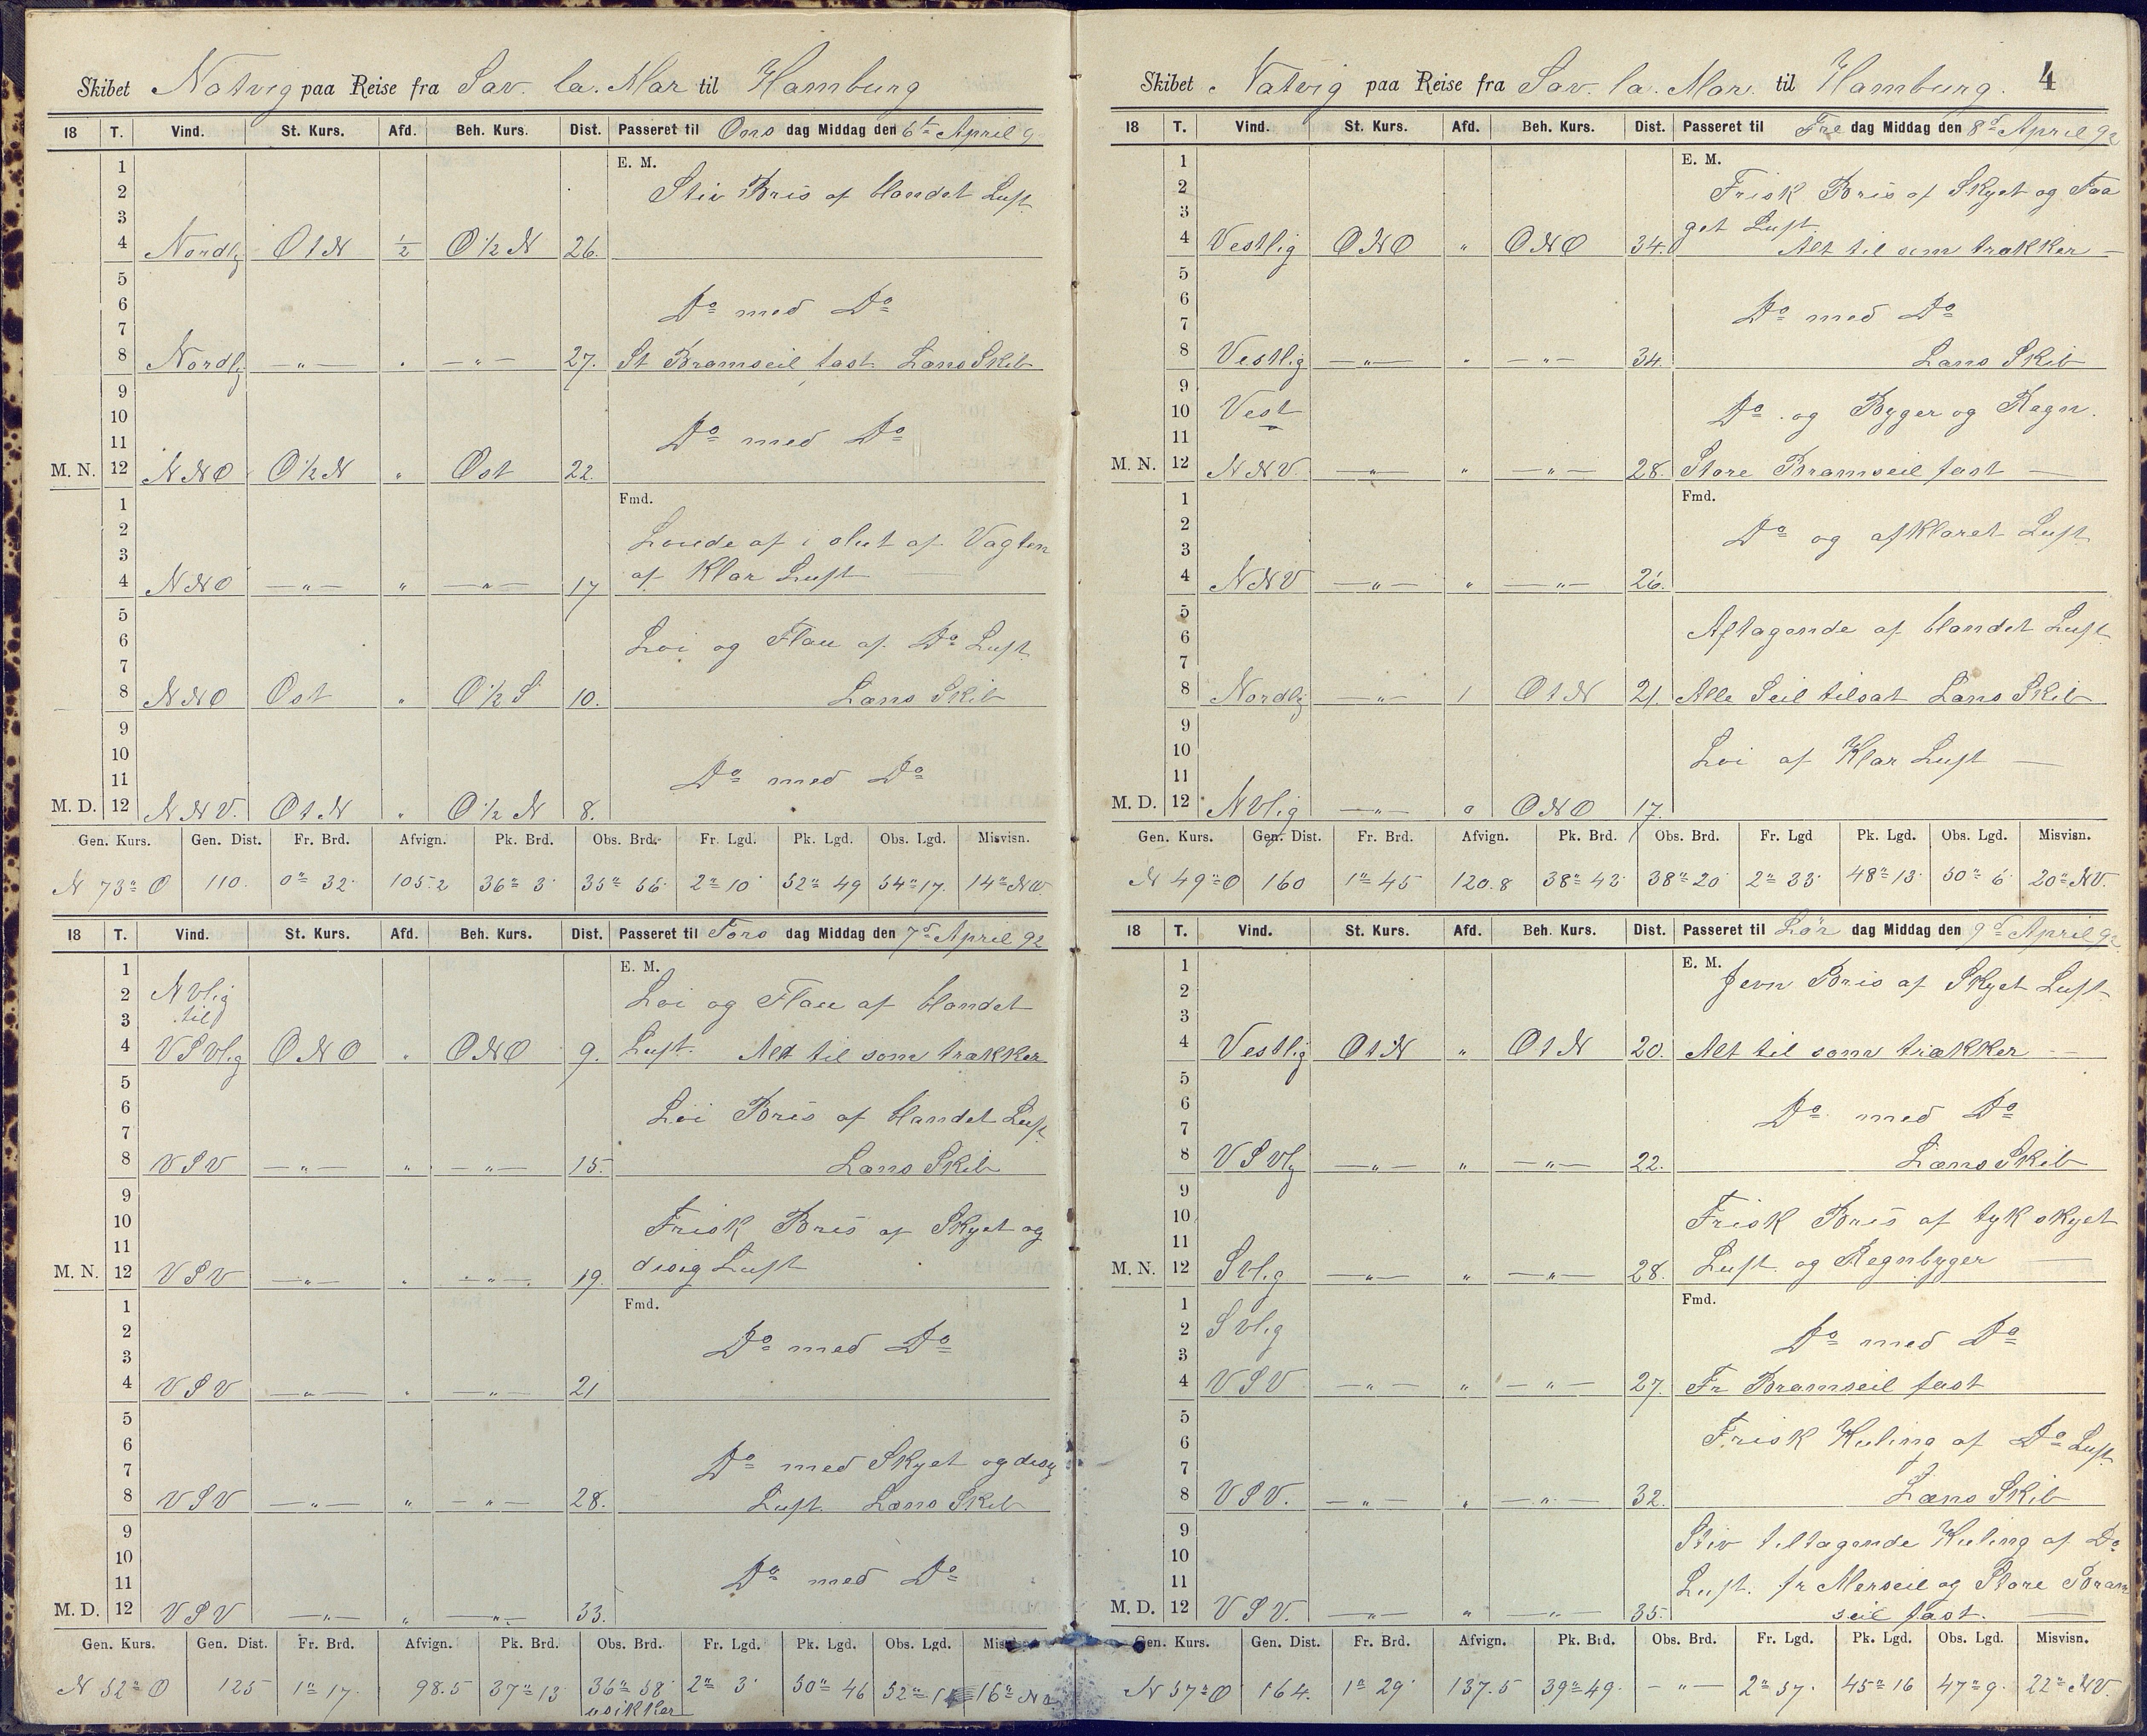 Skibet Natvig paa Reise fra Sav. la. Mar til Hamburg
18 T. Vind. St. Kurs. Afd. Beh. Kurs. Dist. Passeret til Ons dag Middag den 6te April 9
1 E. M.
2 Stiv Bris af blandet Luft
3
4 Nordlig OtN 1/2 O 1/2 N 26.
5
6 Do med Do
7
8 Nordlig —"— " —"— 27. St Bramseil fast Læns Skib
9
10
11 Do med Do
M. N. 12 NNO O 1/2 N " Ost 22.
1 Fmd.
2 Løiede af i slut af Vagten
3
4 NNO —"— " —"— 17 af Klar Luft
5
6 Løi og Flau af Do Luft
7
8 NNO Ost " O 1/2 S 10. Læns Skib
9
10
11 Do med Do
M. D. 12 NNV. OtN " O 1/2 N 8.
Gen. Kurs. Gen. Dist. Fr. Brd. Afvign. Pk. Brd. Obs. Brd. Fr. Lgd. Pk. Lgd. Obs. Lgd. Misvisn.
N 73° O 110. 0° 32' 105.2 36° 3' 35° 56' 2° 10' 52° 49 54° 17. 14° NV.
18 T. Vind. St. Kurs. Afd. Beh. Kurs. Dist. Passeret til Tors dag Middag den 7de April 92
1 E. M.
2 NVlig Løi og Flau af blandet
3 til
4 VSVlig ONO " ONO 9. Luft. Alt til som trækker
5
6 Løi Bris af blandet Luft
7
8 VSV —"— " —"— 15. Læns Skib
9
10 Frisk Bris af Skyet og
11
M. N. 12 VSV —"— " —"— 19. disig Luft
1 Fmd.
2 Do med Do
3
4 VSV —"— " —"— 21
5
6 Do med Skyet og disig
7
8 VSV —"— " —"— 28. Luft Læns Skib
9
10
11 Do med Do
M. D. 12 VSV —"— " —"— 33.
Gen. Kurs. Gen. Dist. Fr. Brd. Afvign. Pk. Brd. Obs. Brd. Fr. Lgd. Pk. Lgd. Obs. Lgd.
N 52° O 125 1° 17. 98.5 37° 13 36° 58' 2° 3' 50° 46 16°
usikker
Skibet Natvig paa Reise fra Sav. la. Mar. til Hamburg. 4
18 T. Vind. St. Kurs. Afd. Beh. Kurs. Dist. Passeret til Fre dag Middag den 8de April 92
1 E. M.
2 Frisk Bris af Skyet og Taa
3 get Luft
4 Vestlig ONO " ONO 34. Alt til som trækker —
5
6 Do med Do
7
8 Vestlig —"— " —"— 34. Læns Skib
9
10 Vest Do og Byger og Regn.
11
M. N. 12 NNV. —"— " —"— 28. Store Bramseil fast —
1 Fmd.
2 Do og afklaret Luft
3
4 NNV —"— " —"— 26.
5
6 Aftagende af blandet Luft
7
8 Nordlig —"— 1 OtN 21. Alle Seil tilsat Læns Skib
9
10 Løi af Klar Luft —
11
M. D. 12 NVlig —"— 0 ONO 17.
Gen. Kurs. Gen. Dist. Fr. Brd. Afvign. Pk. Brd. Obs. Brd. Fr. Lgd Pk. Lgd. Obs. Lgd. Misvisn.
N 49° O 160 1° 45 120.8 38° 43' 38° 20' 2° 33' 48° 13' 50° 6' 20° NV.
18 T. Vind. St. Kurs. Afd. Beh. Kurs. Dist. Passeret til Lør dag Middag den 9de April 92
1 E. M. Jevn Bris af Skyet Luft
2
3
4 Vestlig OtN " OtN 20. Alt til som trækker —
5
6 Do med Do
7
8 VSVlg —"— " —"— 22. Læns Skib
9
10 Frisk Bris af tyk skyet
11
M. N. 12 SVlig —"— " —"— 28. Luft og Regnbyger —
1 Fmd.
2 SVlig Do med Do
3
4 VSV —"— " —"— 27. Fr Bramseil fast
5
6 Frisk Kuling af Do Luft
7
8 VSV. —"— " —"— 32. Læns Skib
9 Stiv tiltagende Kuling af Do
10
11 Luft. fr Merseil og Store Bram
M. D. 12 VSV. —"— " —"— 35. seil fast. —
Gen. Kurs. Gen. Dist. Fr. Brd. Afvign. Pk. Brd. Obs. Brd. Fr. Lgd. Pk. Lgd. Obs. Lgd. Misvisn.
N 57° O 164. 1° 29' 137.5 39° 49. —"— 2° 57. 45° 16 47° 9. 22° NV.